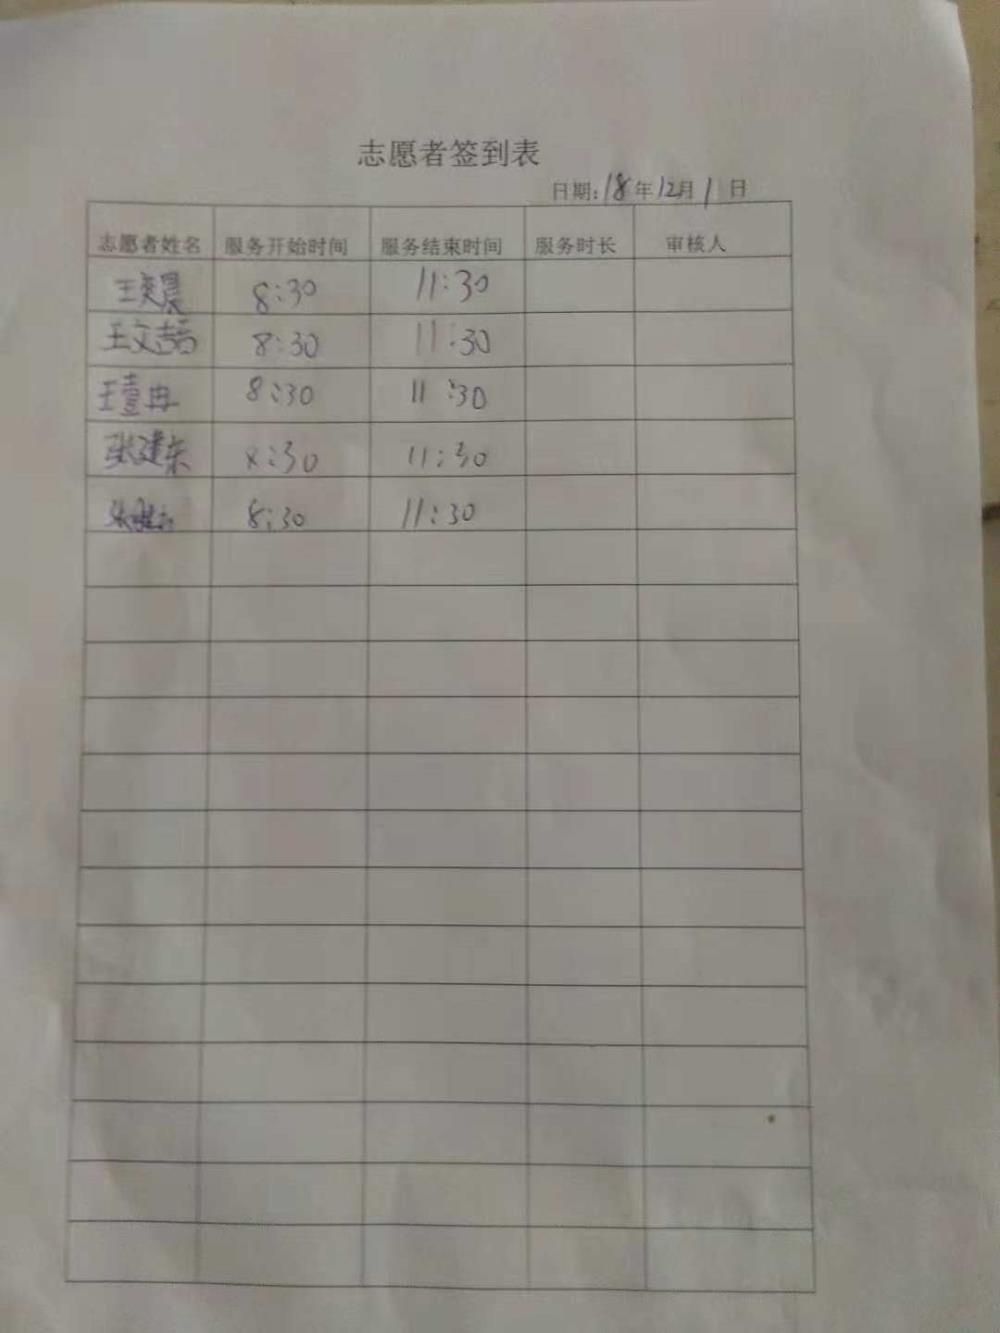 志愿者签到表
日期:18年12月1日
志愿者姓名 服务开始时间 服务结束时间 服务时长 审核人
王奕晨 8:30 11:30
王文喆 8:30 11:30
王壹冉 8:30 11:30
张建东 8:30 11:30
张 8:30 11:30